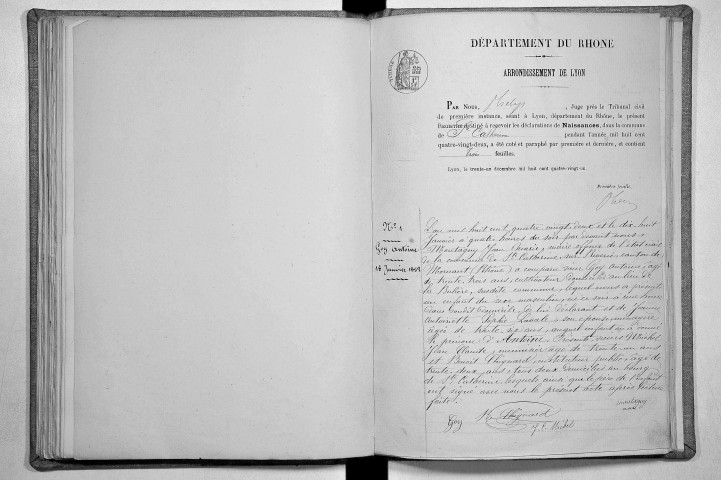 DÉPARTEMENT DU RHONE
ARRONDISSEMENT DE LYON
PAR NOUS, , Juge près le Tribunal civil
de première instance, séant à Lyon, département du Rhône, le présent
Registre destiné à recevoir les déclarations de Naissances, dans la commune
de Ste Catherine pendant l'année mil huit cent
quatre-vingt-deux, a été coté et paraphé par première et dernière, et contient
trois feuilles.
Lyon, le trente-un décembre mil huit cent quatre-vingt-un.
Première feuille,
No 1
Goy Antoine
18 Janvier 1882
L'an mil huit cent quatre vingt deux et le dix huit
Janvier à quatre heures du soir par devant nous
Montagny Jean Marie, maire officier de l'état civil
de la commune de Ste Catherine sur Riverie canton de
Mornant (Rhône) a comparu sieur Goy Antoine, âgé
de trente trois ans, cultivateur, domicilié au lieu de
susdite commune, lequel nous a présenté
un enfant du sexe masculin, né ce
dans de lui déclarant et de Jeanne
Antoinette son épouse, ménagère
âgée de trente six ans, auquel enfant il a donné
le prénom d'Antoine. Présents sieurs Michel
Jean Claude, menuisier âgé de trente un ans
et Benoit instituteur public, âgé de
trente deux ans, tous deux domiciliés au bourg
de Ste Catherine, lesquels ainsi que le père de l'enfant
ont signé avec nous le présent acte après lecture
faite.
Goy
J. C. Michel
Montagny
maire